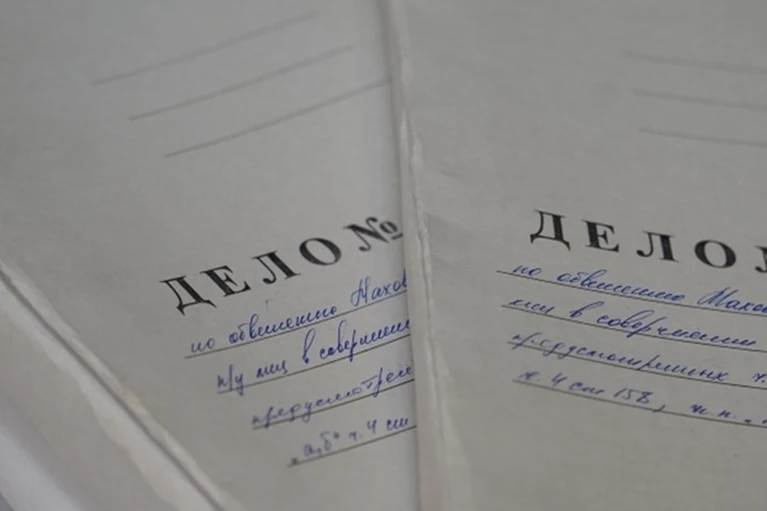 ДЕЛО №
по обвинению Махов
др. лиц в совершении
предусмотрен
"а,б" ч. 4 ст
ДЕЛО
по обвинению Махов
лиц в совершении
предусмотренных ч.
ч. 4 ст 158, п.п. "